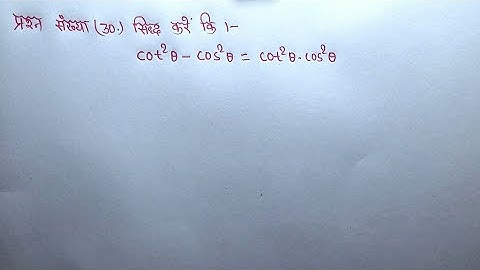 प्रश्न संख्या (30.) सिद्ध करें कि :-
cot²θ - cos²θ = cot²θ·cos²θ